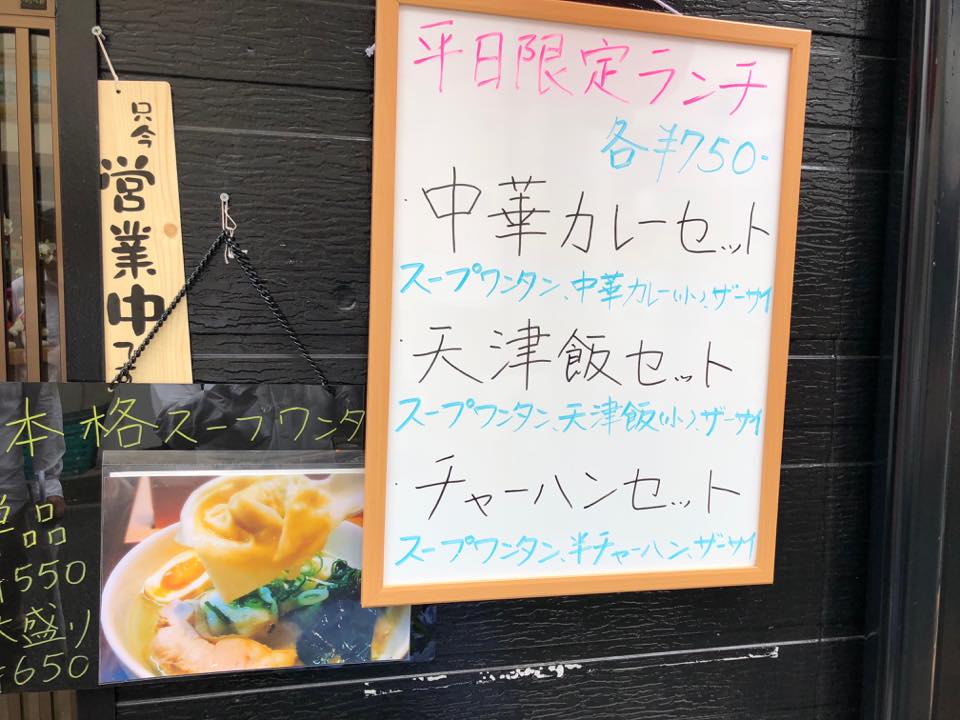 只今
営業中
平日限定ランチ
各¥750-
・中華カレーセット
スープワンタン、中華カレー(小)、ザーサイ
・天津飯セット
スープワンタン、天津飯(小)、ザーサイ
・チャーハンセット
スープワンタン、半チャーハン、ザーサイ
本格スープワンタ
単品
¥550
大盛り
¥650